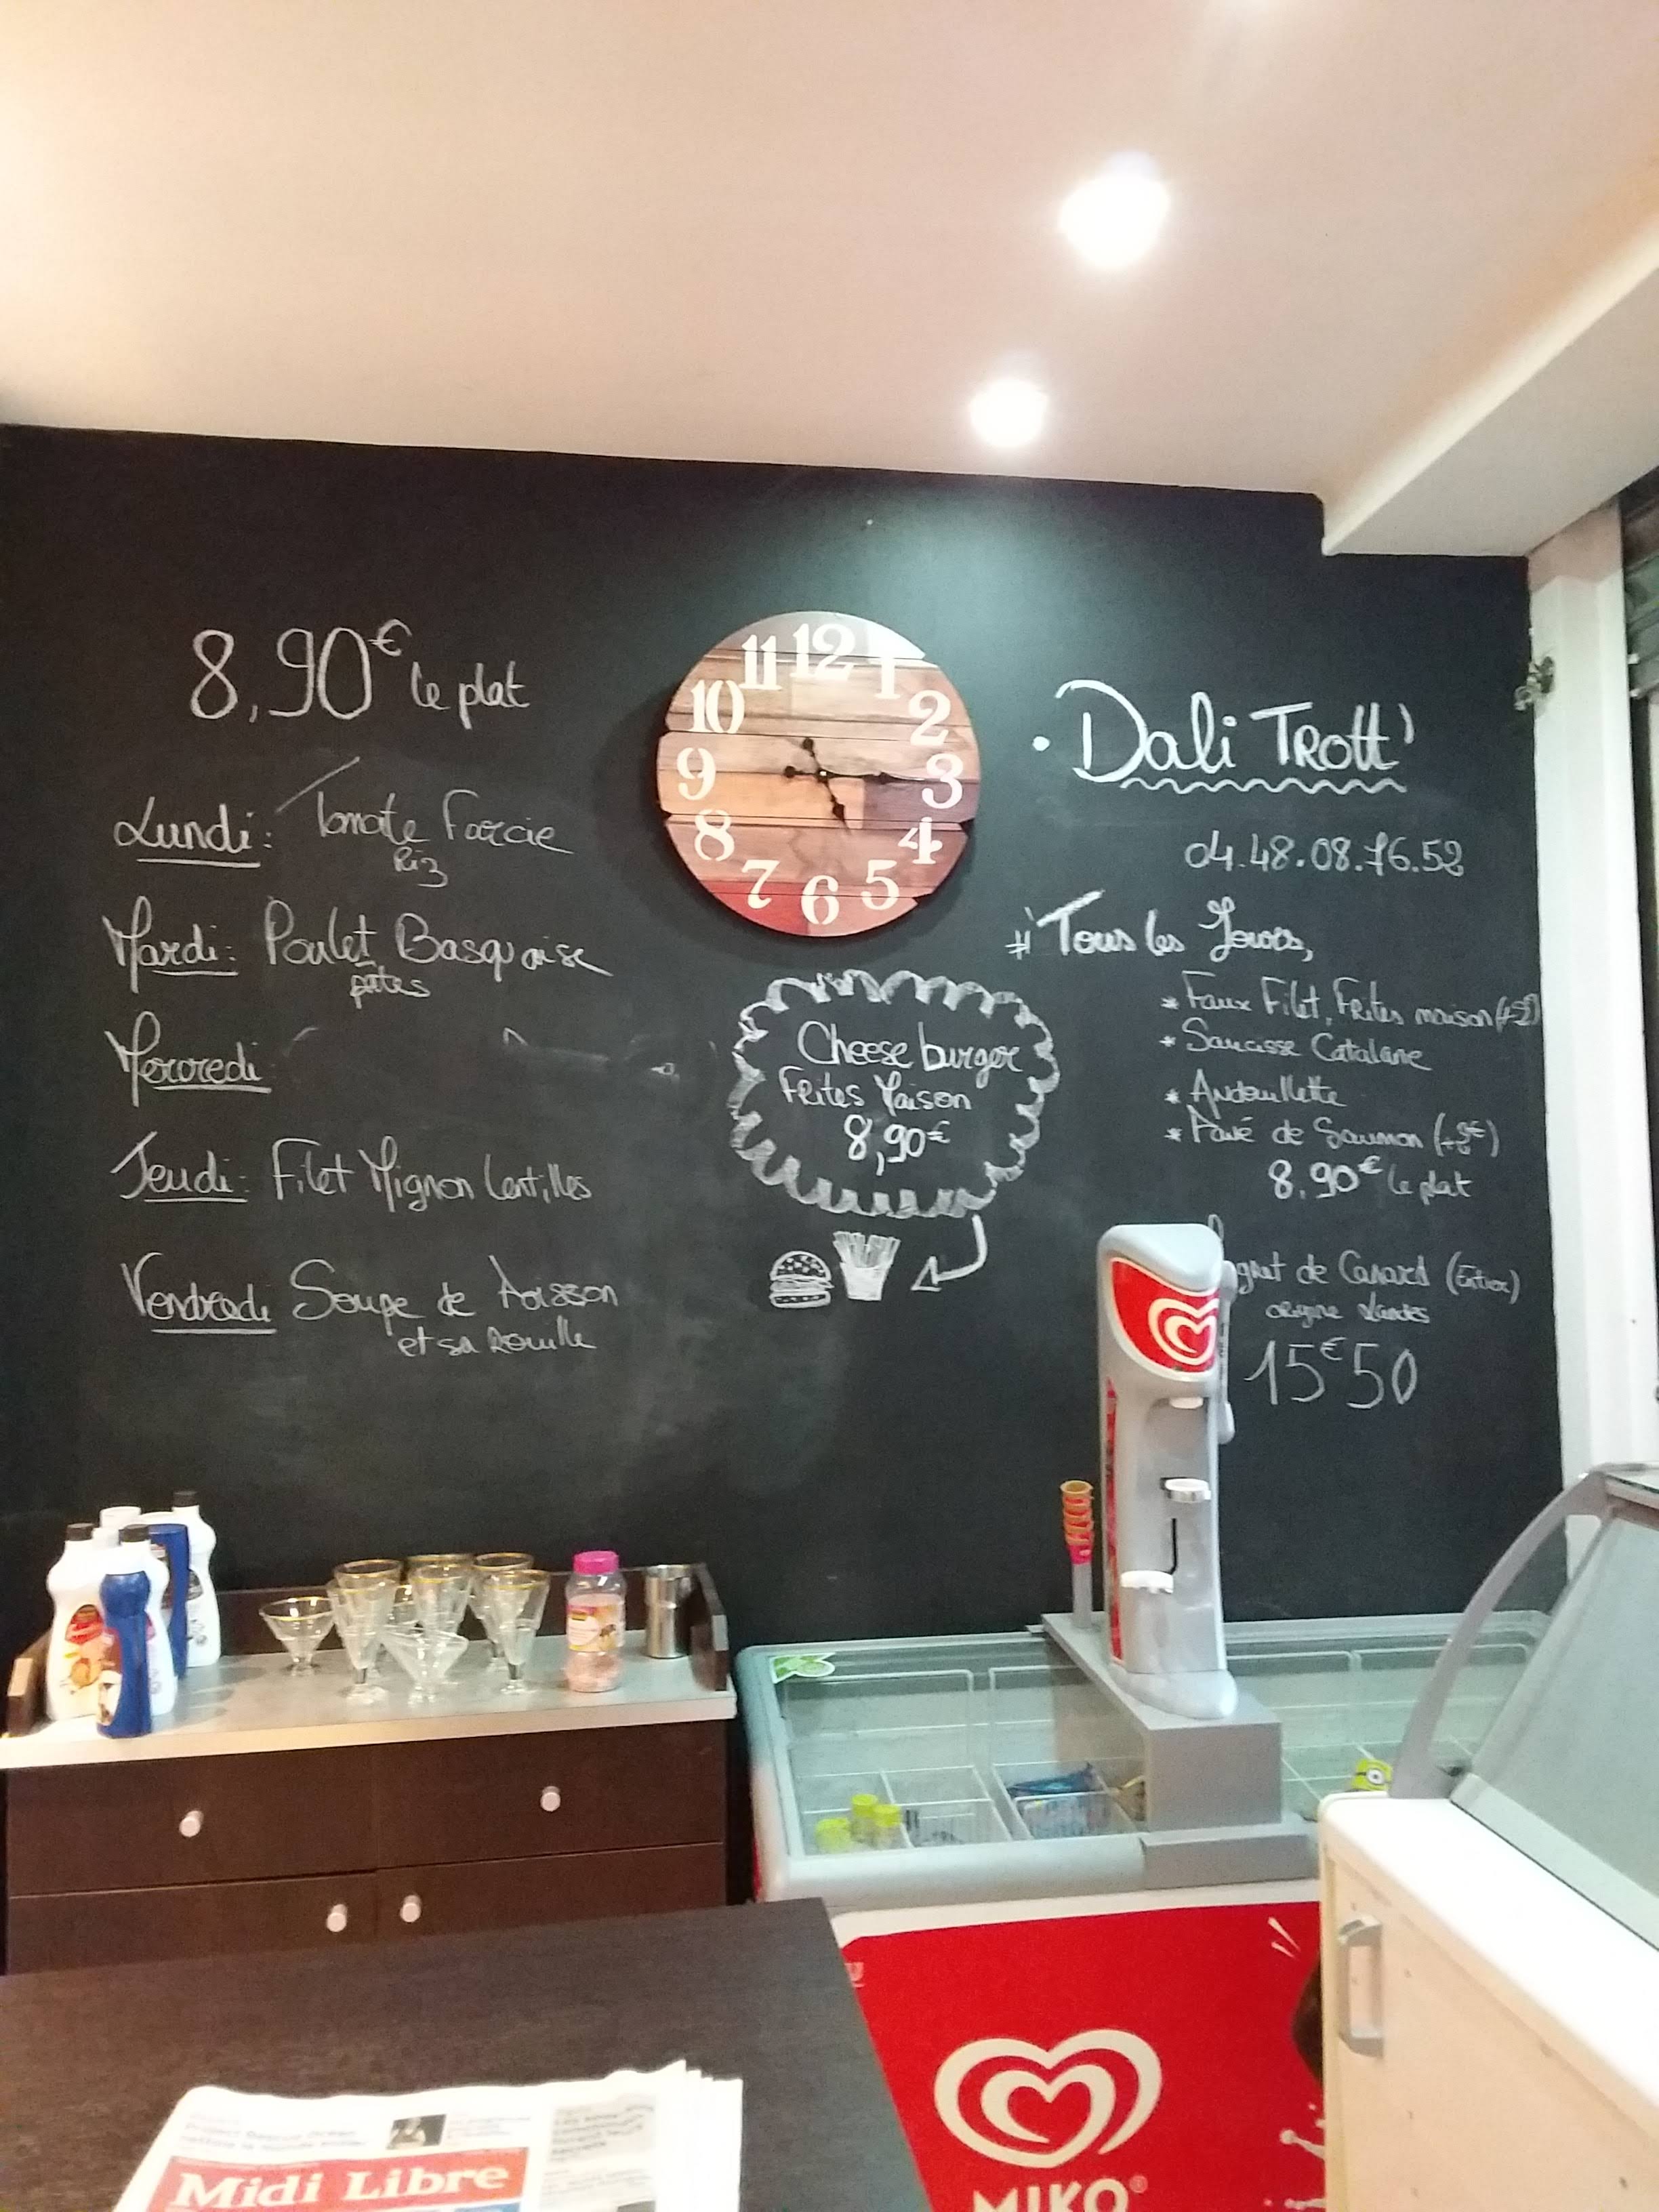 8,90€ le plat
Lundi: Tomate Farcie
Riz
Mardi: Poulet Basquaise
pâtes
Mercredi
Jeudi: Filet Mignon lentilles
Vendredi Soupe de Poisson
et sa Rouille
11 12 1
10 2
9 3
8 4
7 6 5
Cheese burger
Frites Maison
8,90€
. Dali Trott'
04.48.08.76.52
# Tous les Jours,
* Faux Filet, Frites maison
* Saucisse Catalane
* Andouillette
* Pavé de Saumon
8.90€ le plat
gret de Canard (Entier)
origine Landes
15€50
Midi Libre
MIKO®